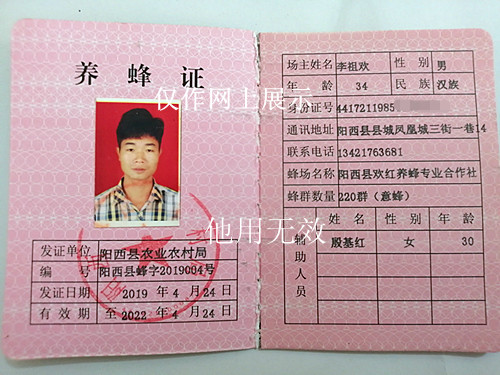 养蜂证
发证单位 阳西县农业农村局
编号 阳西县蜂字2019004号
发证日期 2019 年 4 月 24 日
有效期 至 2022 年 4 月 24 日
场主姓名 李祖欢 性别 男
年龄 34 民族 汉族
身份证号 4417211985
通讯地址 阳西县县城凤凰城三街一巷14
联系电话 13421763681
蜂场名称 阳西县欢红养蜂专业合作社
蜂群数量 220群(意蜂)
辅助人员
姓名 性别 年龄
殷基红 女 30
仅作网上展示
他用无效